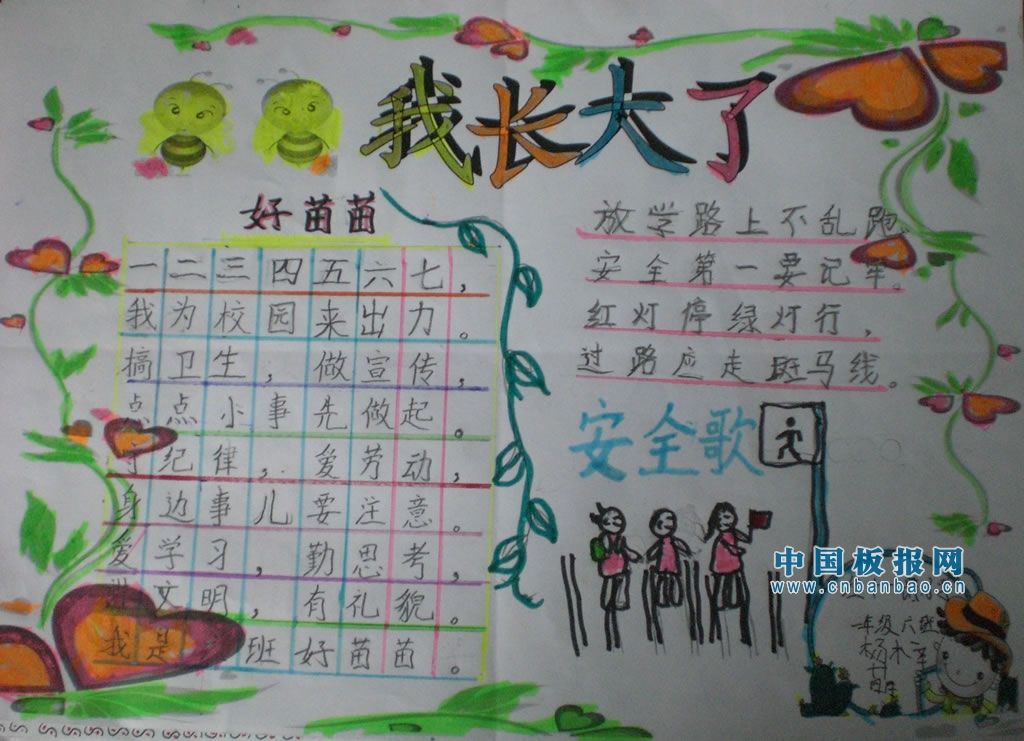 我长大了
好苗苗
一二三四五六七，
我为校园来出力。
搞卫生，做宣传，
点点小事先做起。
守纪律，爱劳动，
身边事儿要注意。
爱学习，勤思考，
讲文明，有礼貌。
我是 班好苗苗。
放学路上不乱跑，
安全第一要记牢。
红灯停绿灯行，
过路应走斑马线。
安全歌
中国板报网
www.cnbanbao.cn
一年级六班